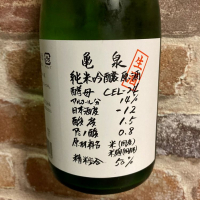 亀泉
生酒
純米吟醸原酒
酵母 CEL-24
アルコール分 14%
日本酒度 -12
酸度 1.5
アミノ酸 0.8
原材料名 米(国産)
米麹(国産米)
精米歩合 50%